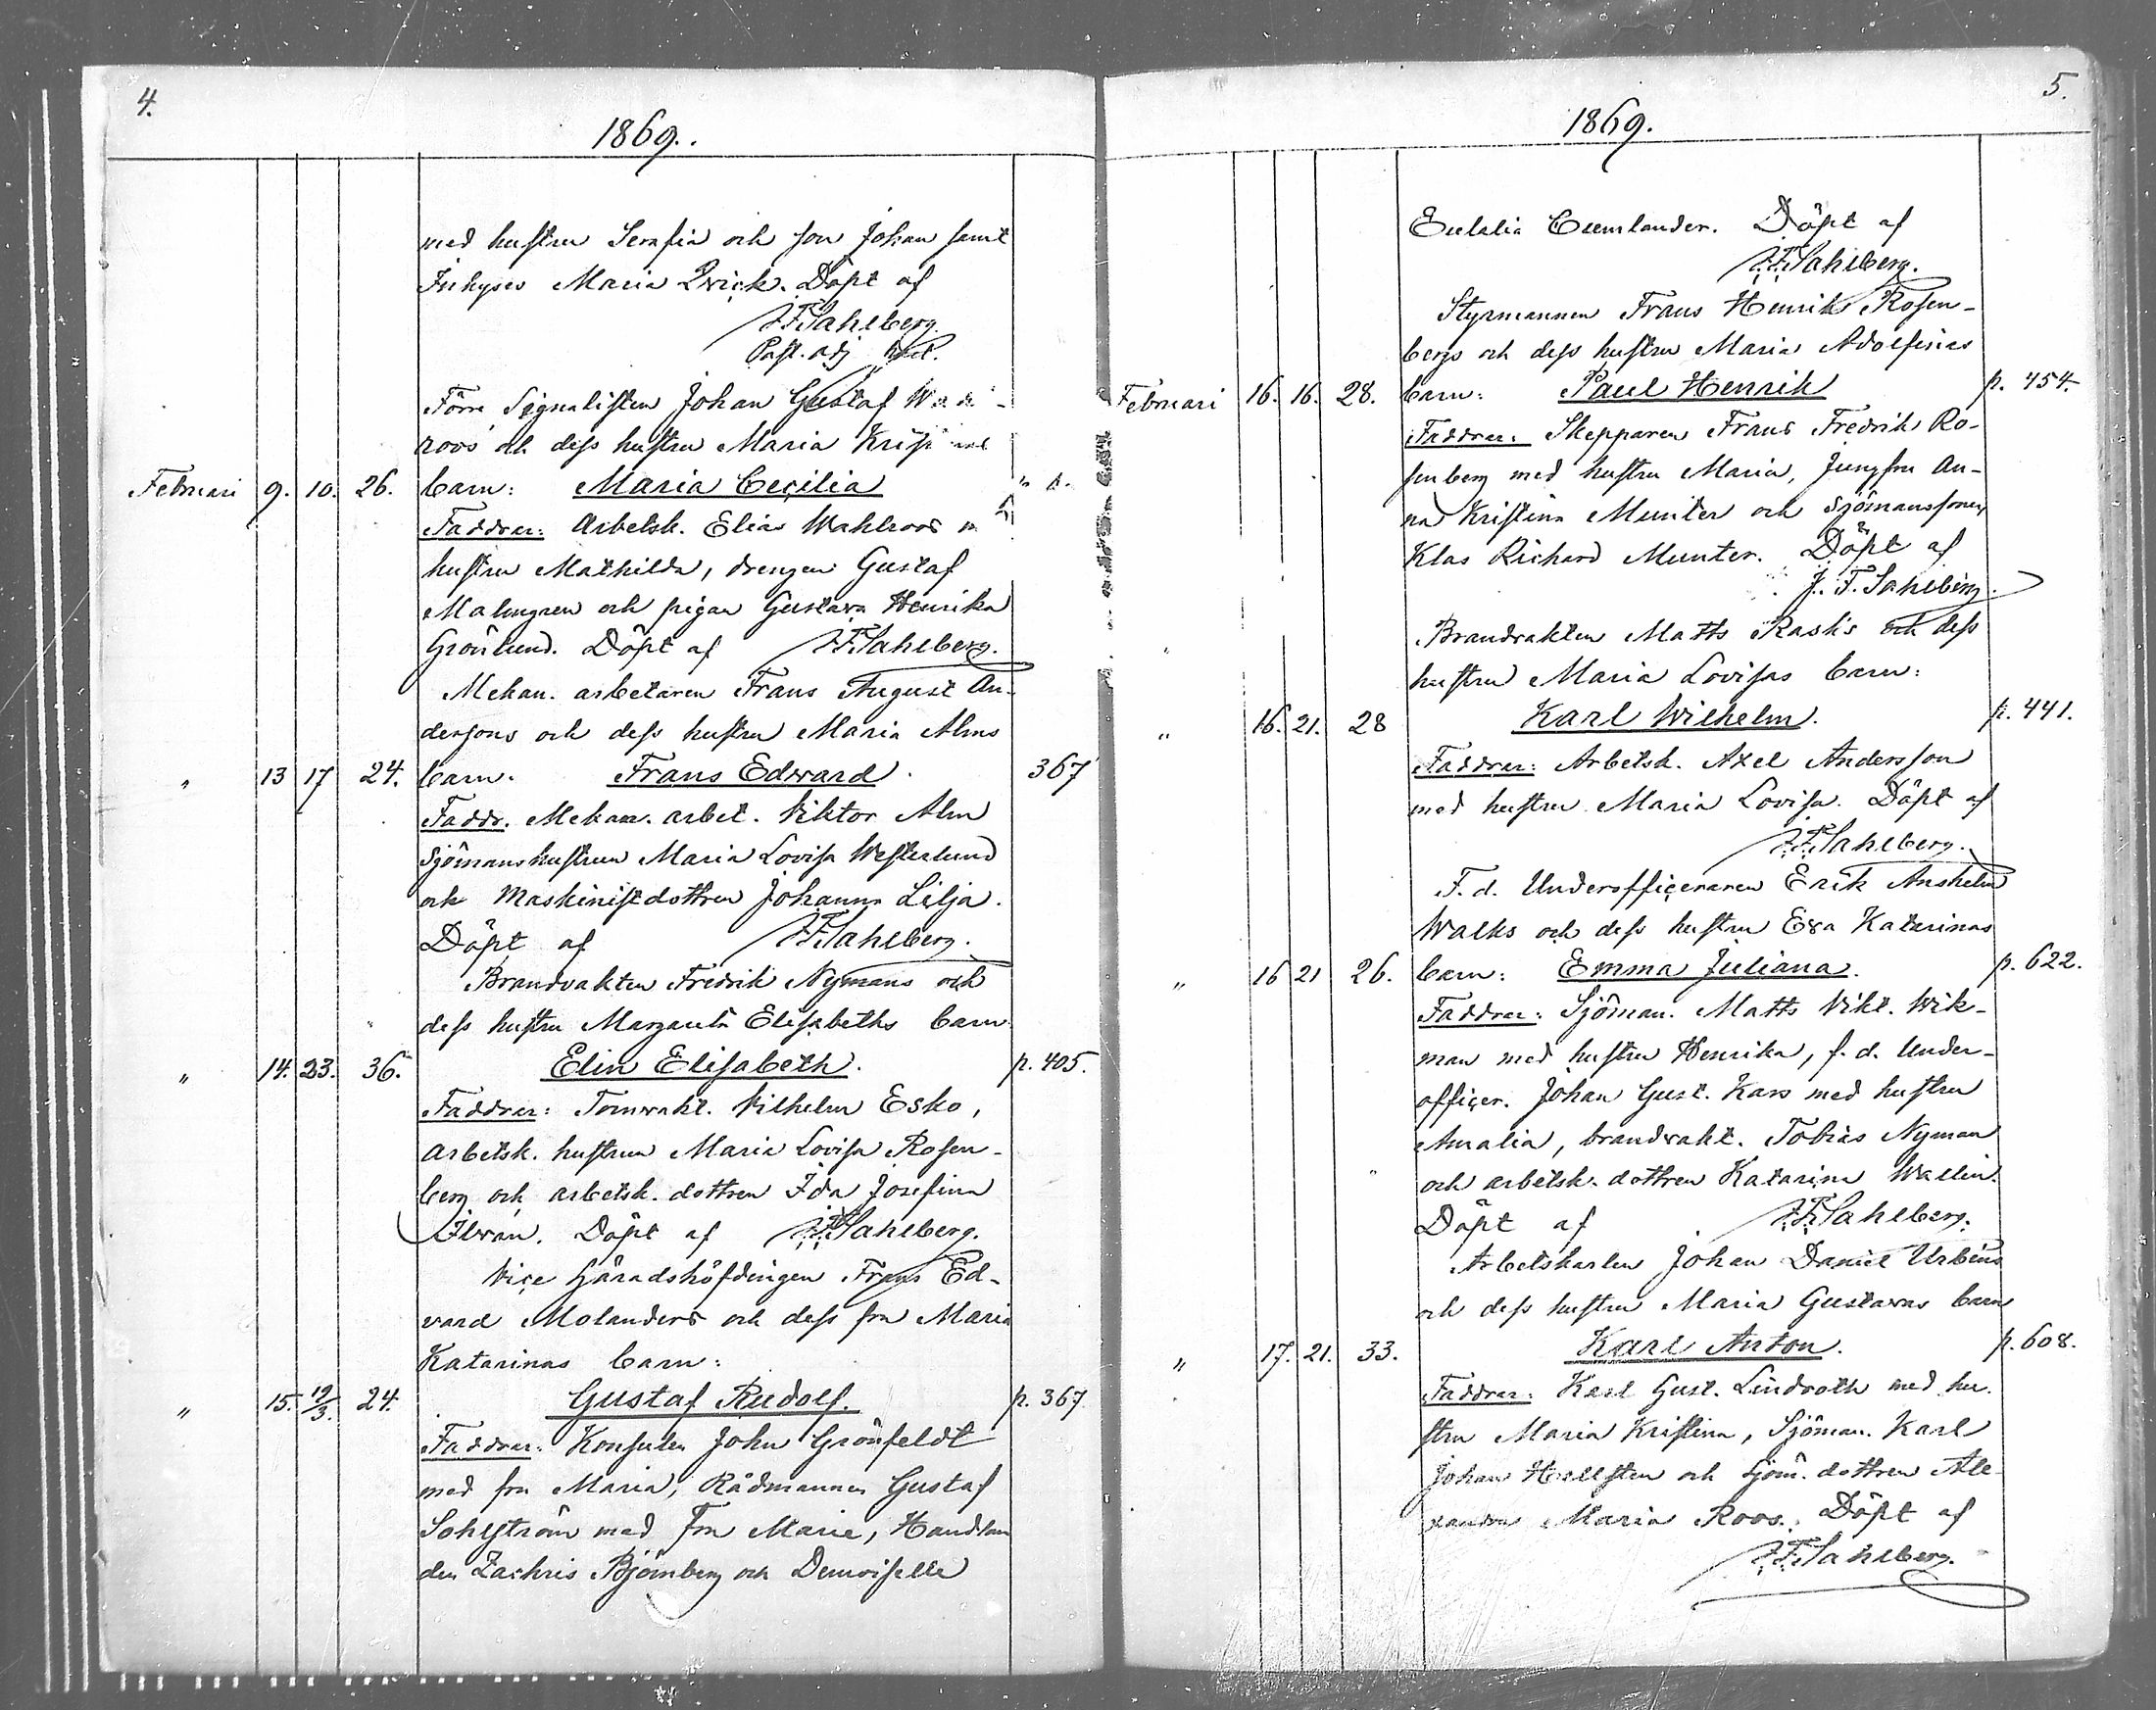 4.
1869.
med hustru Serafia och son Johan samt
Inhyses Maria Qvick. Döpt af
J.F. Sahlberg.
Past. adj.
Förre Signalisten Johan Gustaf
roos och dess hustru Maria
Februari 9. 10. 26. barn: Maria Cecilia
Faddrar: Arbetsk. Elias Wahlroos m
hustru Mathilda, drengen Gustaf
Malmgren och pigan Gustava Henrika
Grönlund. Döpt af J.F. Sahlberg.
Mekan. arbetaren Frans August An-
dersons och dess hustru Maria Alms
" 13 17 24. barn. Frans Edward. 367
Faddr. Mekan. arbet. Viktor Alm
Sjömanshustrun Maria Lovisa Westerlund
och Maskinistdottren Johanna Lilja.
Döpt af J.F. Sahlberg.
Brandvakten Fredrik Nymans och
dess hustru Margareta Elisabeths barn
" 14. 23. 36. Elin Elisabeth. p. 405.
Faddrar: Tornvakt. Vilhelm Esko,
arbetsk. hustrun Maria Lovisa Rosen-
berg och arbetsk. dottren Ida Josefina
Ilvan. Döpt af J.F. Sahlberg.
Vice Häradshöfdingen Frans Ed-
vard Molanders och dess fru Maria
Katarinas barn:
" 15. 19/3. 24. Gustaf Rudolf. p. 367
Faddrar: Konsulen John Grönfeldt
med fru Maria, Rådmannen Gustaf
Sohlström med fru Marie, Handlan
den Zachris Björnberg och Demoiselle
5.
1869.
Eulalia Ceemlander. Döpt af
J.F. Sahlberg.
Styrmannen Frans Henrik Rosen-
bergs och dess hustru Maria Adolfinas
Februari 16. 16. 28. barn: Paul Henrik p. 454.
Faddrar: Skepparen Frans Fredrik Ro-
senberg med hustru Maria, Jungfru An-
na Kristina Munter och Sjömanssonen
Klas Richard Munter. Döpt af
J. F. Sahlberg.
Brandvakten Matts Rasks och dess
hustru Maria Lovisas barn:
" 16. 21. 28 Karl Wilhelm. p. 441.
Faddrar: Arbetsk. Axel Andersson
med hustru Maria Lovisa. Döpt af
J.F. Sahlberg.
F. d. Underofficeraren Erik Anshelm
Walks och dess hustru Eva Katarinas
" 16 21 26. barn: Emma Juliana. p. 622.
Faddrar: Sjöman. Matts Vikt. Wik-
man med hustru Henrika, f. d. Under-
officer. Johan Gust. Kass med hustru
Amalia, brandvakt. Tobias Nyman
och arbetsk. dottren Katarina Wallin.
Döpt af J.F. Sahlberg.
Arbetskarlen Johan Daniel Urbéns
och dess hustru Maria Gustavas barn
" 17. 21. 33. Karl Anton. p. 608.
Faddrar: Karl Gust. Lindroth med hu-
stru Maria Kristina, Sjöman. Karl
Johan Hellsten och Sjöm. dottren Ale-
xandra Maria Roos. Döpt af
J.F. Sahlberg.